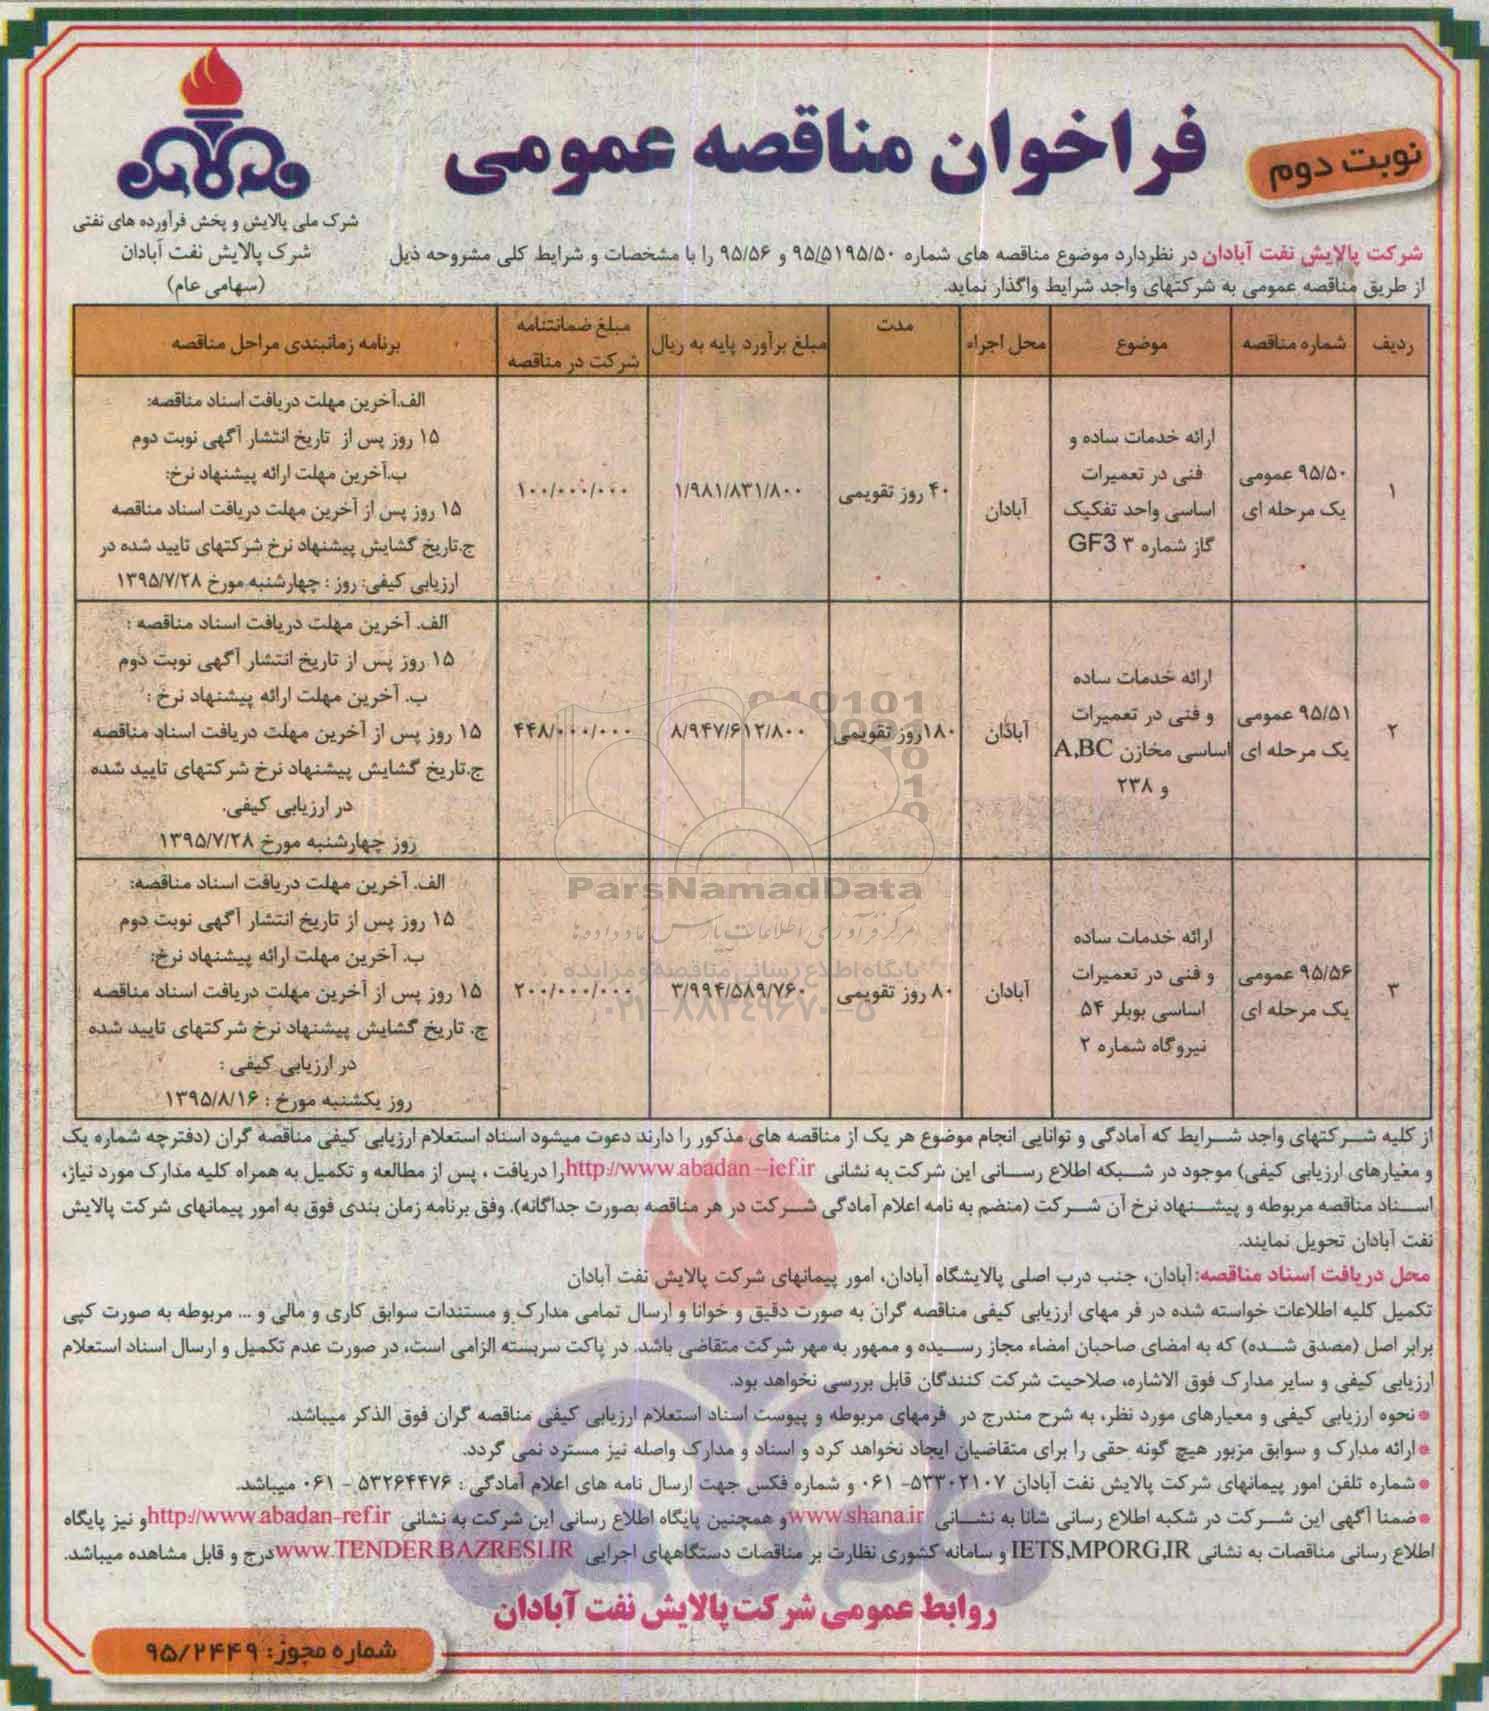 نوبت دوم
فراخوان مناقصه عمومی
شرکت ملی پالایش و پخش فرآورده های نفتی
شرکت پالایش نفت آبادان
(سهامی عام)
شرکت پالایش نفت آبادان در نظردارد موضوع مناقصه های شماره ۹۵/۵۱۹۵/۵۰ و ۹۵/۵۶ را با مشخصات و شرایط کلی مشروحه ذیل
از طریق مناقصه عمومی به شرکتهای واجد شرایط واگذار نماید.
ردیف
شماره مناقصه
موضوع
محل اجراء
مدت
مبلغ برآورد پایه به ریال
مبلغ ضمانتنامه
شرکت در مناقصه
برنامه زمانبندی مراحل مناقصه
۱
۹۵/۵۰ عمومی
یک مرحله ای
ارائه خدمات ساده و
فنی در تعمیرات
اساسی واحد تفکیک
گاز شماره ۳ GF3
آبادان
۴۰ روز تقویمی
۱/۹۸۱/۸۳۱/۸۰۰
۱۰۰/۰۰۰/۰۰۰
الف.آخرین مهلت دریافت اسناد مناقصه:
۱۵ روز پس از تاریخ انتشار آگهی نوبت دوم
ب.آخرین مهلت ارائه پیشنهاد نرخ:
۱۵ روز پس از آخرین مهلت دریافت اسناد مناقصه
ج.تاریخ گشایش پیشنهاد نرخ شرکتهای تایید شده در
ارزیابی کیفی: روز : چهارشنبه مورخ ۱۳۹۵/۷/۲۸
۲
۹۵/۵۱ عمومی
یک مرحله ای
ارائه خدمات ساده
و فنی در تعمیرات
اساسی مخازن A,BC
و ۲۳۸
آبادان
۱۸۰روز تقویمی
۸/۹۴۷/۶۱۲/۸۰۰
۴۴۸/۰۰۰/۰۰۰
الف. آخرین مهلت دریافت اسناد مناقصه :
۱۵ روز پس از تاریخ انتشار آگهی نوبت دوم
ب. آخرین مهلت ارائه پیشنهاد نرخ :
۱۵ روز پس از آخرین مهلت دریافت اسناد مناقصه
ج.تاریخ گشایش پیشنهاد نرخ شرکتهای تایید شده
در ارزیابی کیفی.
روز چهارشنبه مورخ ۱۳۹۵/۷/۲۸
۳
۹۵/۵۶ عمومی
یک مرحله ای
ارائه خدمات ساده
و فنی در تعمیرات
اساسی بویلر ۵۴
نیروگاه شماره ۲
آبادان
۸۰ روز تقویمی
۳/۹۹۴/۵۸۹/۷۶۰
۲۰۰/۰۰۰/۰۰۰
الف. آخرین مهلت دریافت اسناد مناقصه:
۱۵ روز پس از تاریخ انتشار آگهی نوبت دوم
ب. آخرین مهلت ارائه پیشنهاد نرخ:
۱۵ روز پس از آخرین مهلت دریافت اسناد مناقصه
ج. تاریخ گشایش پیشنهاد نرخ شرکتهای تایید شده
در ارزیابی کیفی :
روز یکشنبه مورخ : ۱۳۹۵/۸/۱۶
ParsNamadData
مرکز فرآوری اطلاعات پارس نماد داده ها
پایگاه اطلاع رسانی مناقصه و مزایده
۰۲۱-۸۸۳۴۹۶۷۰-۵
از کلیه شرکتهای واجد شرایط که آمادگی و توانایی انجام موضوع هر یک از مناقصه های مذکور را دارند دعوت میشود اسناد استعلام ارزیابی کیفی مناقصه گران (دفترچه شماره یک
و معیارهای ارزیابی کیفی) موجود در شبکه اطلاع رسانی این شرکت به نشانی http://www.abadan–ief.ir را دریافت ، پس از مطالعه و تکمیل به همراه کلیه مدارک مورد نیاز،
اسناد مناقصه مربوطه و پیشنهاد نرخ آن شرکت (منضم به نامه اعلام آمادگی شرکت در هر مناقصه بصورت جداگانه). وفق برنامه زمان بندی فوق به امور پیمانهای شرکت پالایش
نفت آبادان تحویل نمایند.
محل دریافت اسناد مناقصه: آبادان، جنب درب اصلی پالایشگاه آبادان، امور پیمانهای شرکت پالایش نفت آبادان
تکمیل کلیه اطلاعات خواسته شده در فر مهای ارزیابی کیفی مناقصه گران به صورت دقیق و خوانا و ارسال تمامی مدارک و مستندات سوابق کاری و مالی و ... مربوطه به صورت کپی
برابر اصل (مصدق شده) که به امضای صاحبان امضاء مجاز رسیده و ممهور به مهر شرکت متقاضی باشد. در پاکت سربسته الزامی است، در صورت عدم تکمیل و ارسال اسناد استعلام
ارزیابی کیفی و سایر مدارک فوق الاشاره، صلاحیت شرکت کنندگان قابل بررسی نخواهد بود.
● نحوه ارزیابی کیفی و معیارهای مورد نظر، به شرح مندرج در فرمهای مربوطه و پیوست اسناد استعلام ارزیابی کیفی مناقصه گران فوق الذکر میباشد.
● ارائه مدارک و سوابق مزبور هیچ گونه حقی را برای متقاضیان ایجاد نخواهد کرد و اسناد و مدارک واصله نیز مسترد نمی گردد.
● شماره تلفن امور پیمانهای شرکت پالایش نفت آبادان ۵۳۳۰۲۱۰۷- ۰۶۱ و شماره فکس جهت ارسال نامه های اعلام آمادگی : ۵۳۲۶۴۴۷۶ - ۰۶۱ میباشد.
● ضمنا آگهی این شرکت در شکبه اطلاع رسانی شانا به نشانی www.shana.ir و همچنین پایگاه اطلاع رسانی این شرکت به نشانی http://www.abadan-ref.ir و نیز پایگاه
اطلاع رسانی مناقصات به نشانی IETS,MPORG,IR و سامانه کشوری نظارت بر مناقصات دستگاههای اجرایی www.TENDER.BAZRESI.IR درج و قابل مشاهده میباشد.
روابط عمومی شرکت پالایش نفت آبادان
شماره مجوز: ۹۵/۲۴۴۹